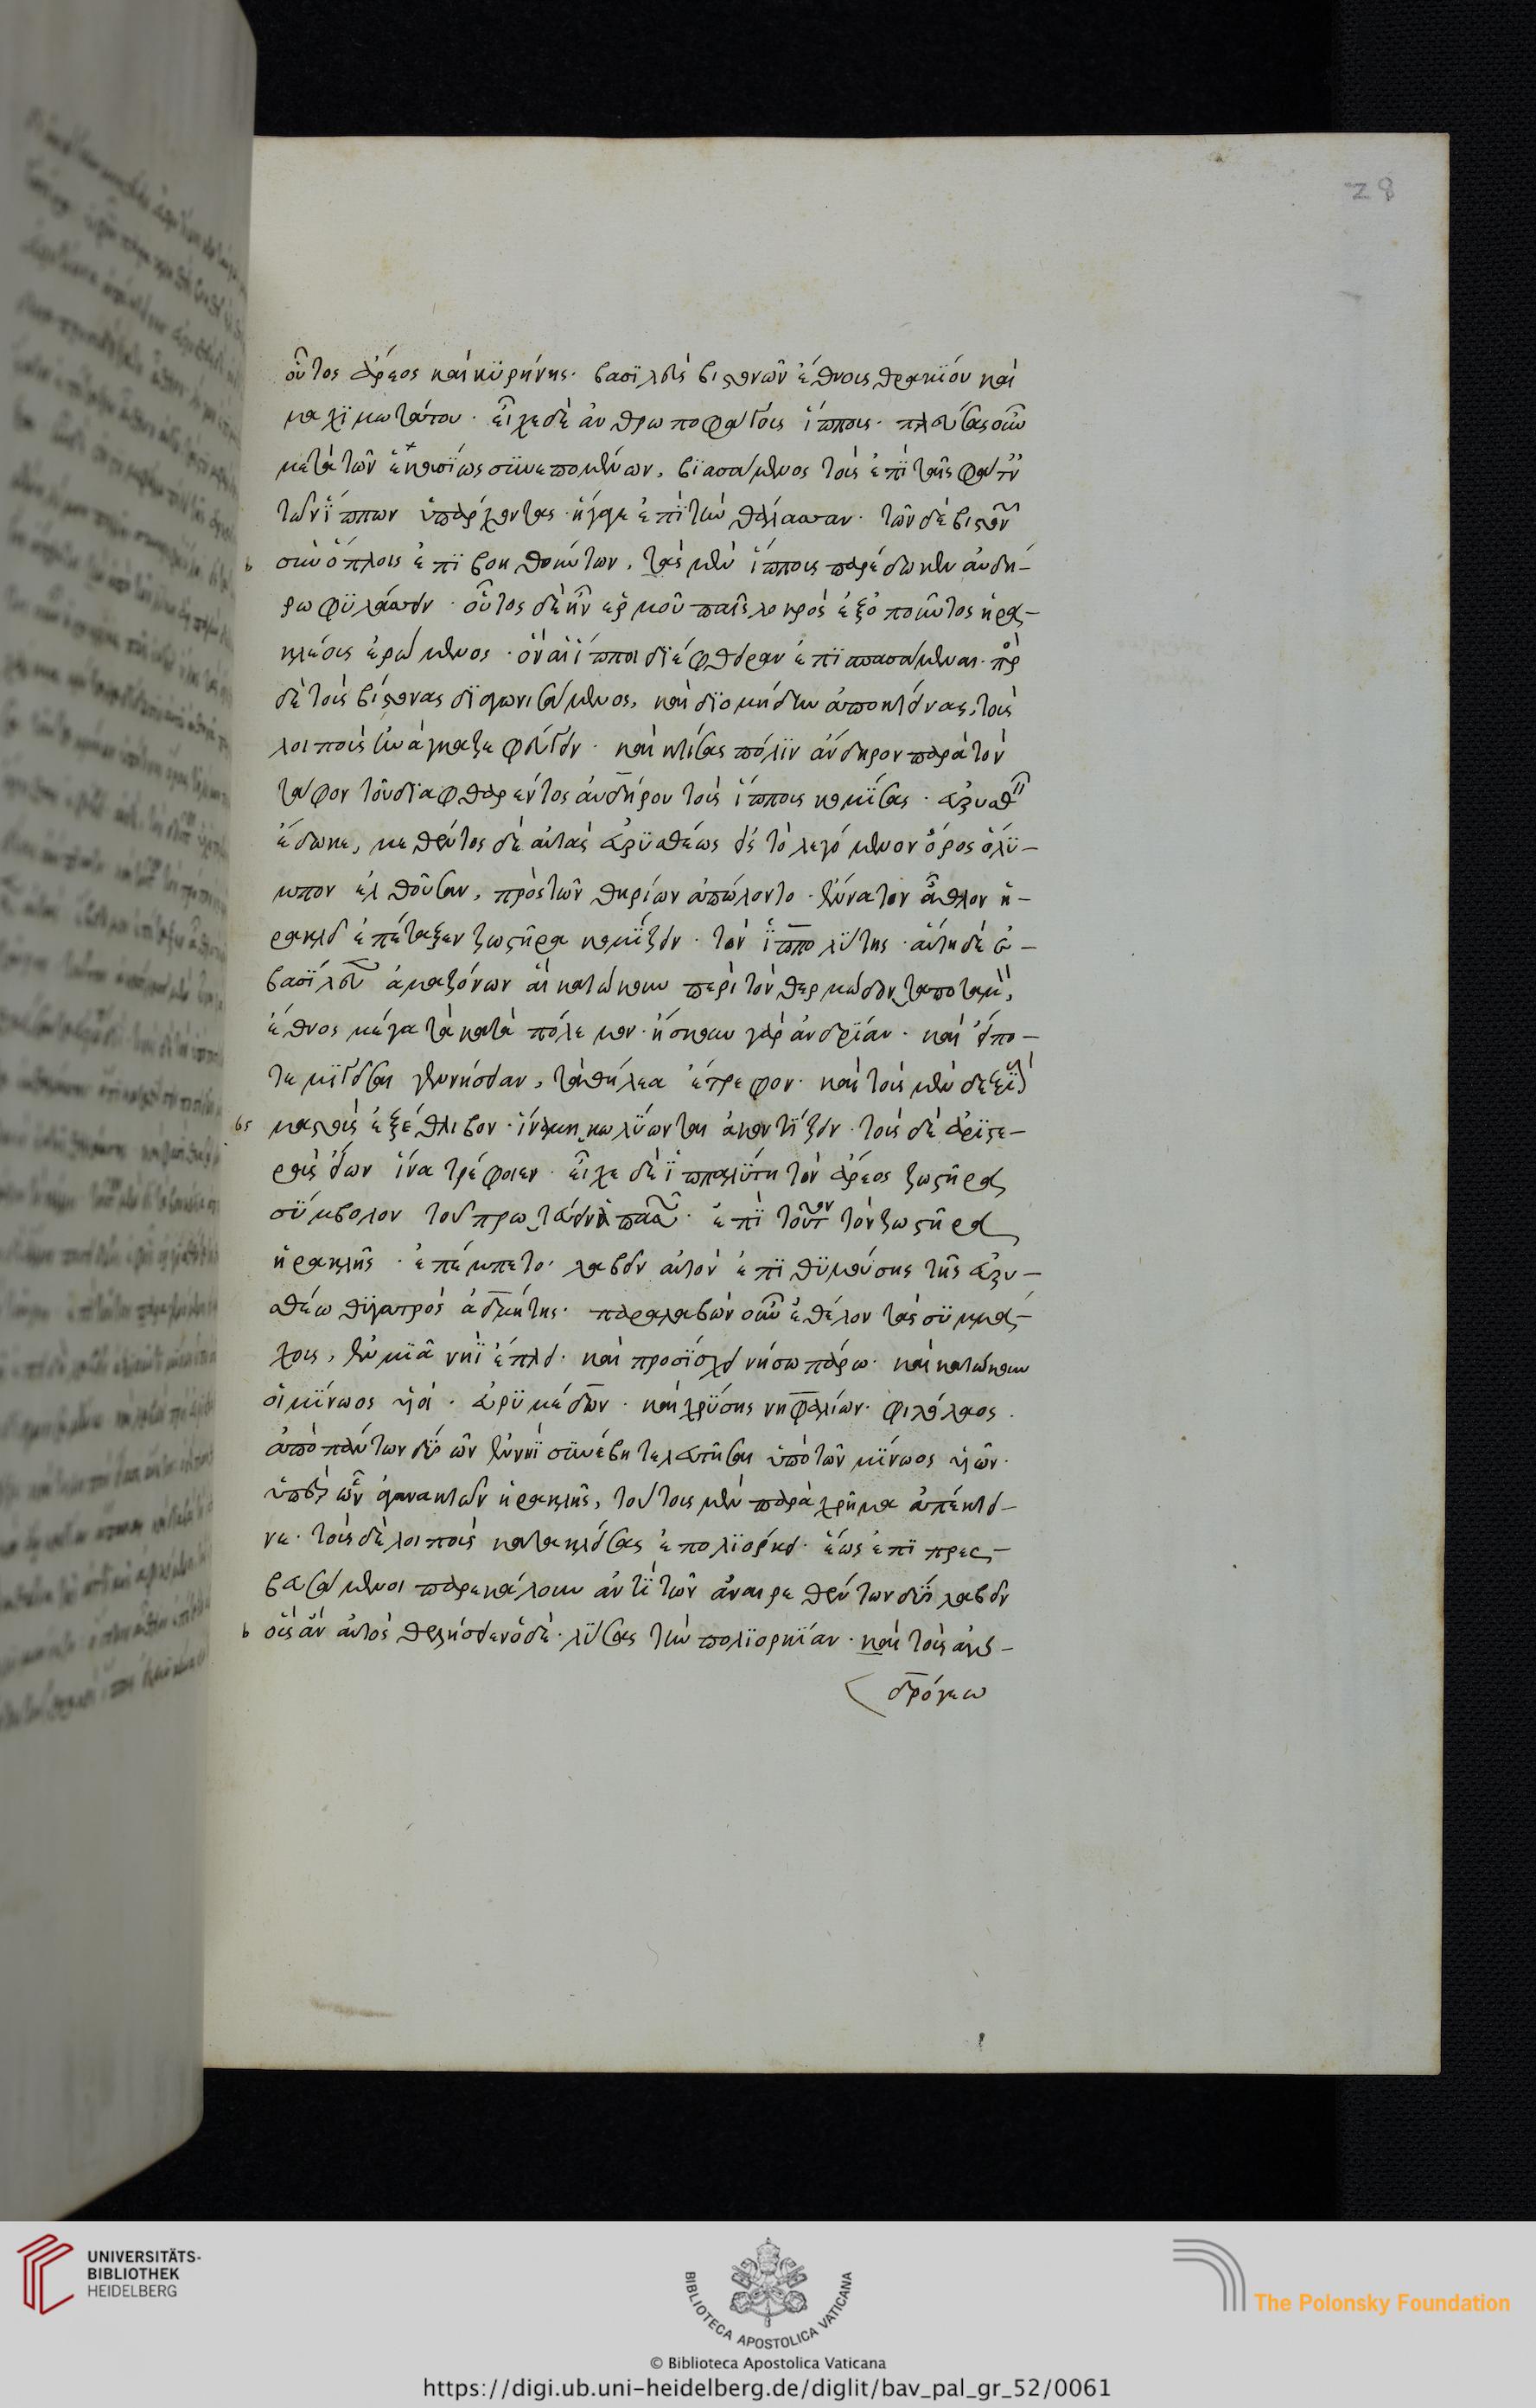 28
οὗτος ἄρεος καὶ κϋρήνης· βασϊλεὺς βιστόνων ἔθνους θρακίου καὶ
μαχϊμωτάτου· εἶχε δὲ ἀνθρωποφάγους ἵππους· πλεύσας οὖν
μετὰ τῶν ἑκουσίως συνεπομένων, βϊασάμενος τοὺς ἐπὶ ταῖς φάτν
τῶν ἵππων ὑπάρχοντας· ἤγαγε ἐπὶ τὴν θάλασσαν· τῶν δὲ βιστόν
σὺν ὅπλοις ἐπϊβοηθούντων, τὰς μὲν ἵππους παρέδωκεν αὐδή-
ρω φϋλάσσειν· οὗτος δὲ ἦν ἑρμοῦ παῖς λοκρὸς ἐξ ὀποῦντος ἡρα-
κλέους ἐρώμενος· ὃν αἱ ἵπποι διέφθειραν ἐπϊσπασάμεναι· πρ
δὲ τοὺς βίστονας δϊαγωνισάμενος, καὶ δϊομήδην ἀποκτείνας, τοὺς
λοιποὺς ἠνάγκαζε φεύγειν· καὶ κτίσας πόλϊν ἄνδηρον παρὰ τὸν
τάφον τοῦ δϊαφθαρέντος αὐδήρου τοὺς ἵππους κομίσας· εὐρυσθ
ἔδωκε, μεθέντος δὲ αὐτὰς εὐρϋσθέως εἰς τὸ λεγόμενον ὄρος ὄλϋ-
μπον ἐλθοῦσαν, πρὸς τῶν θηρίων ἀπώλοντο· ἔννατον ἆθλον ἡ-
ρακλεῖ ἐπέταξεν ζωστῆρα κομΐζειν· τὸν ἵππολύτης· αὕτη δὲ ἐ-
βασίλευ ἀμαζόνων αἳ κατώκουν περὶ τὸν θερμώδοντα ποταμ,
ἔθνος μέγα τὰ κατὰ πόλεμον· ἤσκουν γὰρ ἀνδρίαν· καὶ εἴπο-
τε μϊγεῖσαι γεννήσειαν, τὰ θήλεα ἔτρεφον· καὶ τοὺς μὲν δεξϊ
μαστοὺς ἐξέθλιβον· ἵνα μὴ κωλύωνται ἀκοντΐζειν· τοὺς δὲ ἀρϊστε-
ροὺς εἴων ἵνα τρέφοιεν· εἶχε δὲ ἱππολύτη τὸν ἄρεος ζωστῆρα
σύμβολον τοῦ πρωτεύειν ἁπα· ἐπὶ τοῦτον τὸν ζωστῆρα
ἡρακλῆς· ἐπέμπετο· λαβεῖν αὐτὸν ἐπϊθϋμούσης τῆς εὐρυ-
σθέω θϋγατρὸς ἀδμήτης· παραλαβὼν οὖν ἐθέλον τὰς συμμά-
χους, ἐν μϊᾶ νηῒ ἔπλει· καὶ προσΐσχει νήσω πάρω· καὶ κατώκουν
οἱ μίνωος υἱοὶ· εὐρϋμέδων· καὶ χρύσης νηφαλίων· φιλόλαος·
ἀπὸ πάντων δϋο ὧν ἐν νηῒ σϋνέβη τελευτῆσαι ὑπὸ τῶν μίνωος υἱῶν·
ὑπὲρ ὧν ἀγανακτῶν ἡρακλῆς, τούτους μὲν παρὰ χρῆμα ἀπέκτει-
νε· τοὺς δὲ λοιποὺς κατακλείσας ἐπολϊόρκει· ἕως ἐπϊπρες-
βευσάμενοι παρεκάλουν ἀντὶ τῶν ἀναιρεθέντων δϋο λαβεῖν
οὓς ἂν αὐτὸς θελήσειεν ὁ δὲ· λύσας τὴν πολϊορκΐαν· καὶ τοὺς ἀν-
δρόγεω
UNIVERSITÄTS-
BIBLIOTHEK
HEIDELBERG
BIBLIOTECA APOSTOLICA VATICANA
The Polonsky Foundation
© Biblioteca Apostolica Vaticana
https://digi.ub.uni-heidelberg.de/diglit/bav_pal_gr_52/0061